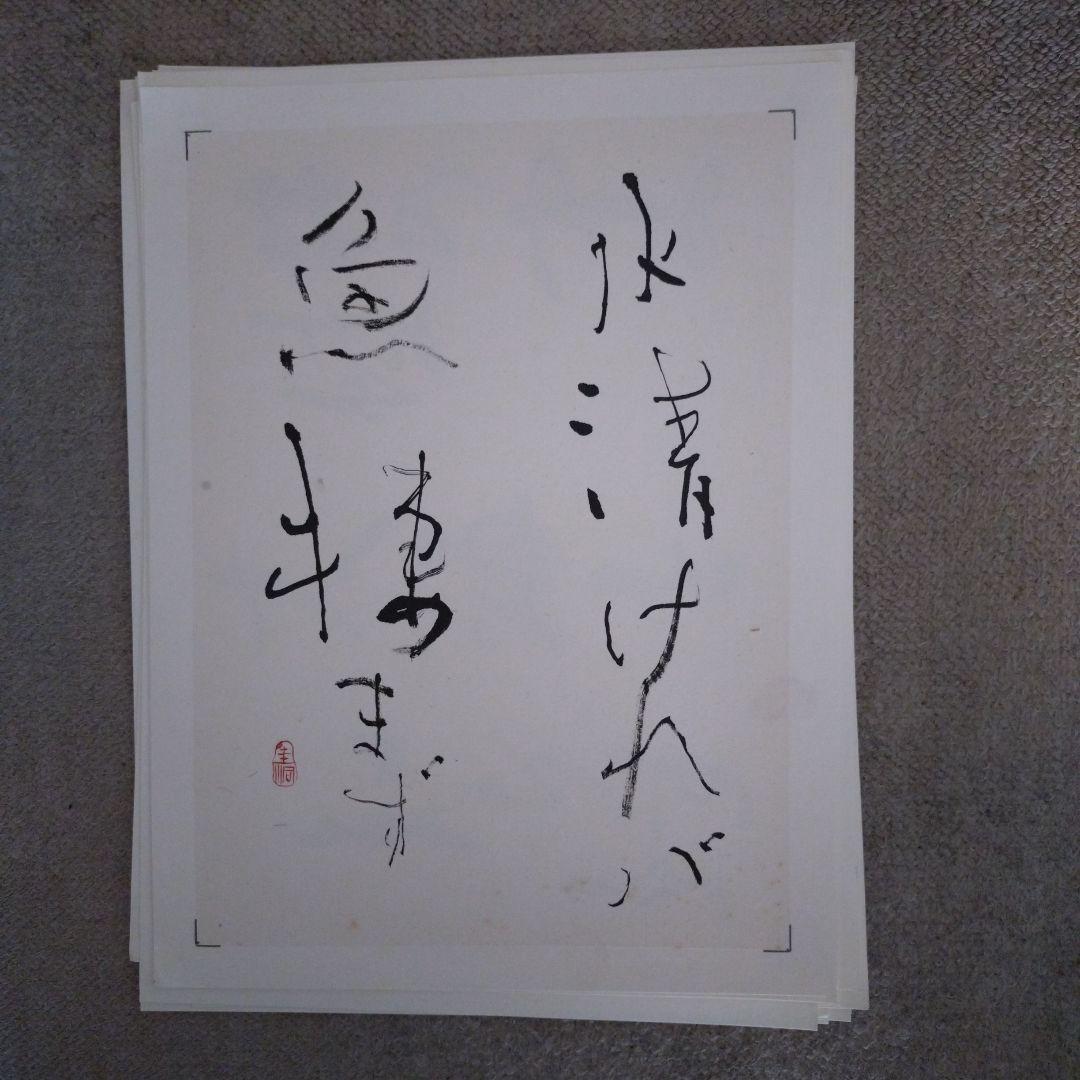 水清ければ
魚棲まず